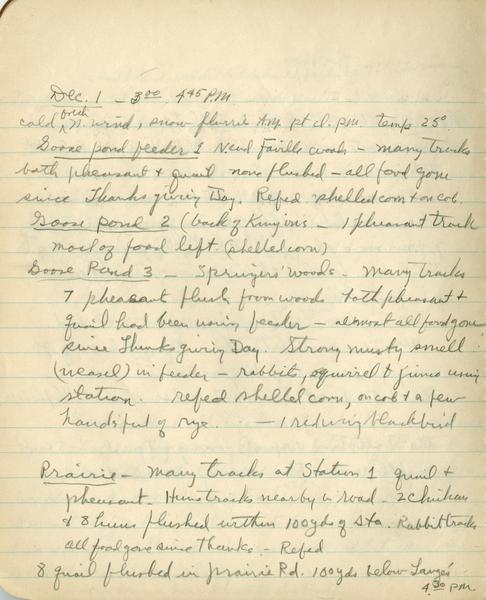 Dec. 1 – 3:00 4:45 P.M
cold brisk N. wind, snow flurrie A.M. pt cl. P.M. temp 25°
Goose pond feeder 1 N. end Faville woods – many tracks
both pheasant & quail none flushed – all food gone
since Thanksgiving Day. Refed shelled corn & on cob.
Goose Pond 2 (back of – 1 pheasant track
most of food left (shelled corn)
Goose Pond 3 – Springers' woods – Many tracks
7 pheasant flush from woods both pheasant &
quail had been using feeder – almost all food gone
since Thanksgiving Day. Strong musty smell
(weasel) in feeder – rabbits, squirrel & junco using
station. refed shelled corn, on cob & a few
handsful of rye. – 1 redwing blackbird
Prairie – Many tracks at Station 1 quail &
pheasant – Huns tracks nearby in road – 2 chickens
& 8 huns flushed within 100 yds of Sta. Rabbit tracks
all food gone since Thanks. – Refed
8 quail flushed in prairie Rd. 100 yds below Lange's
4:30 P.M.